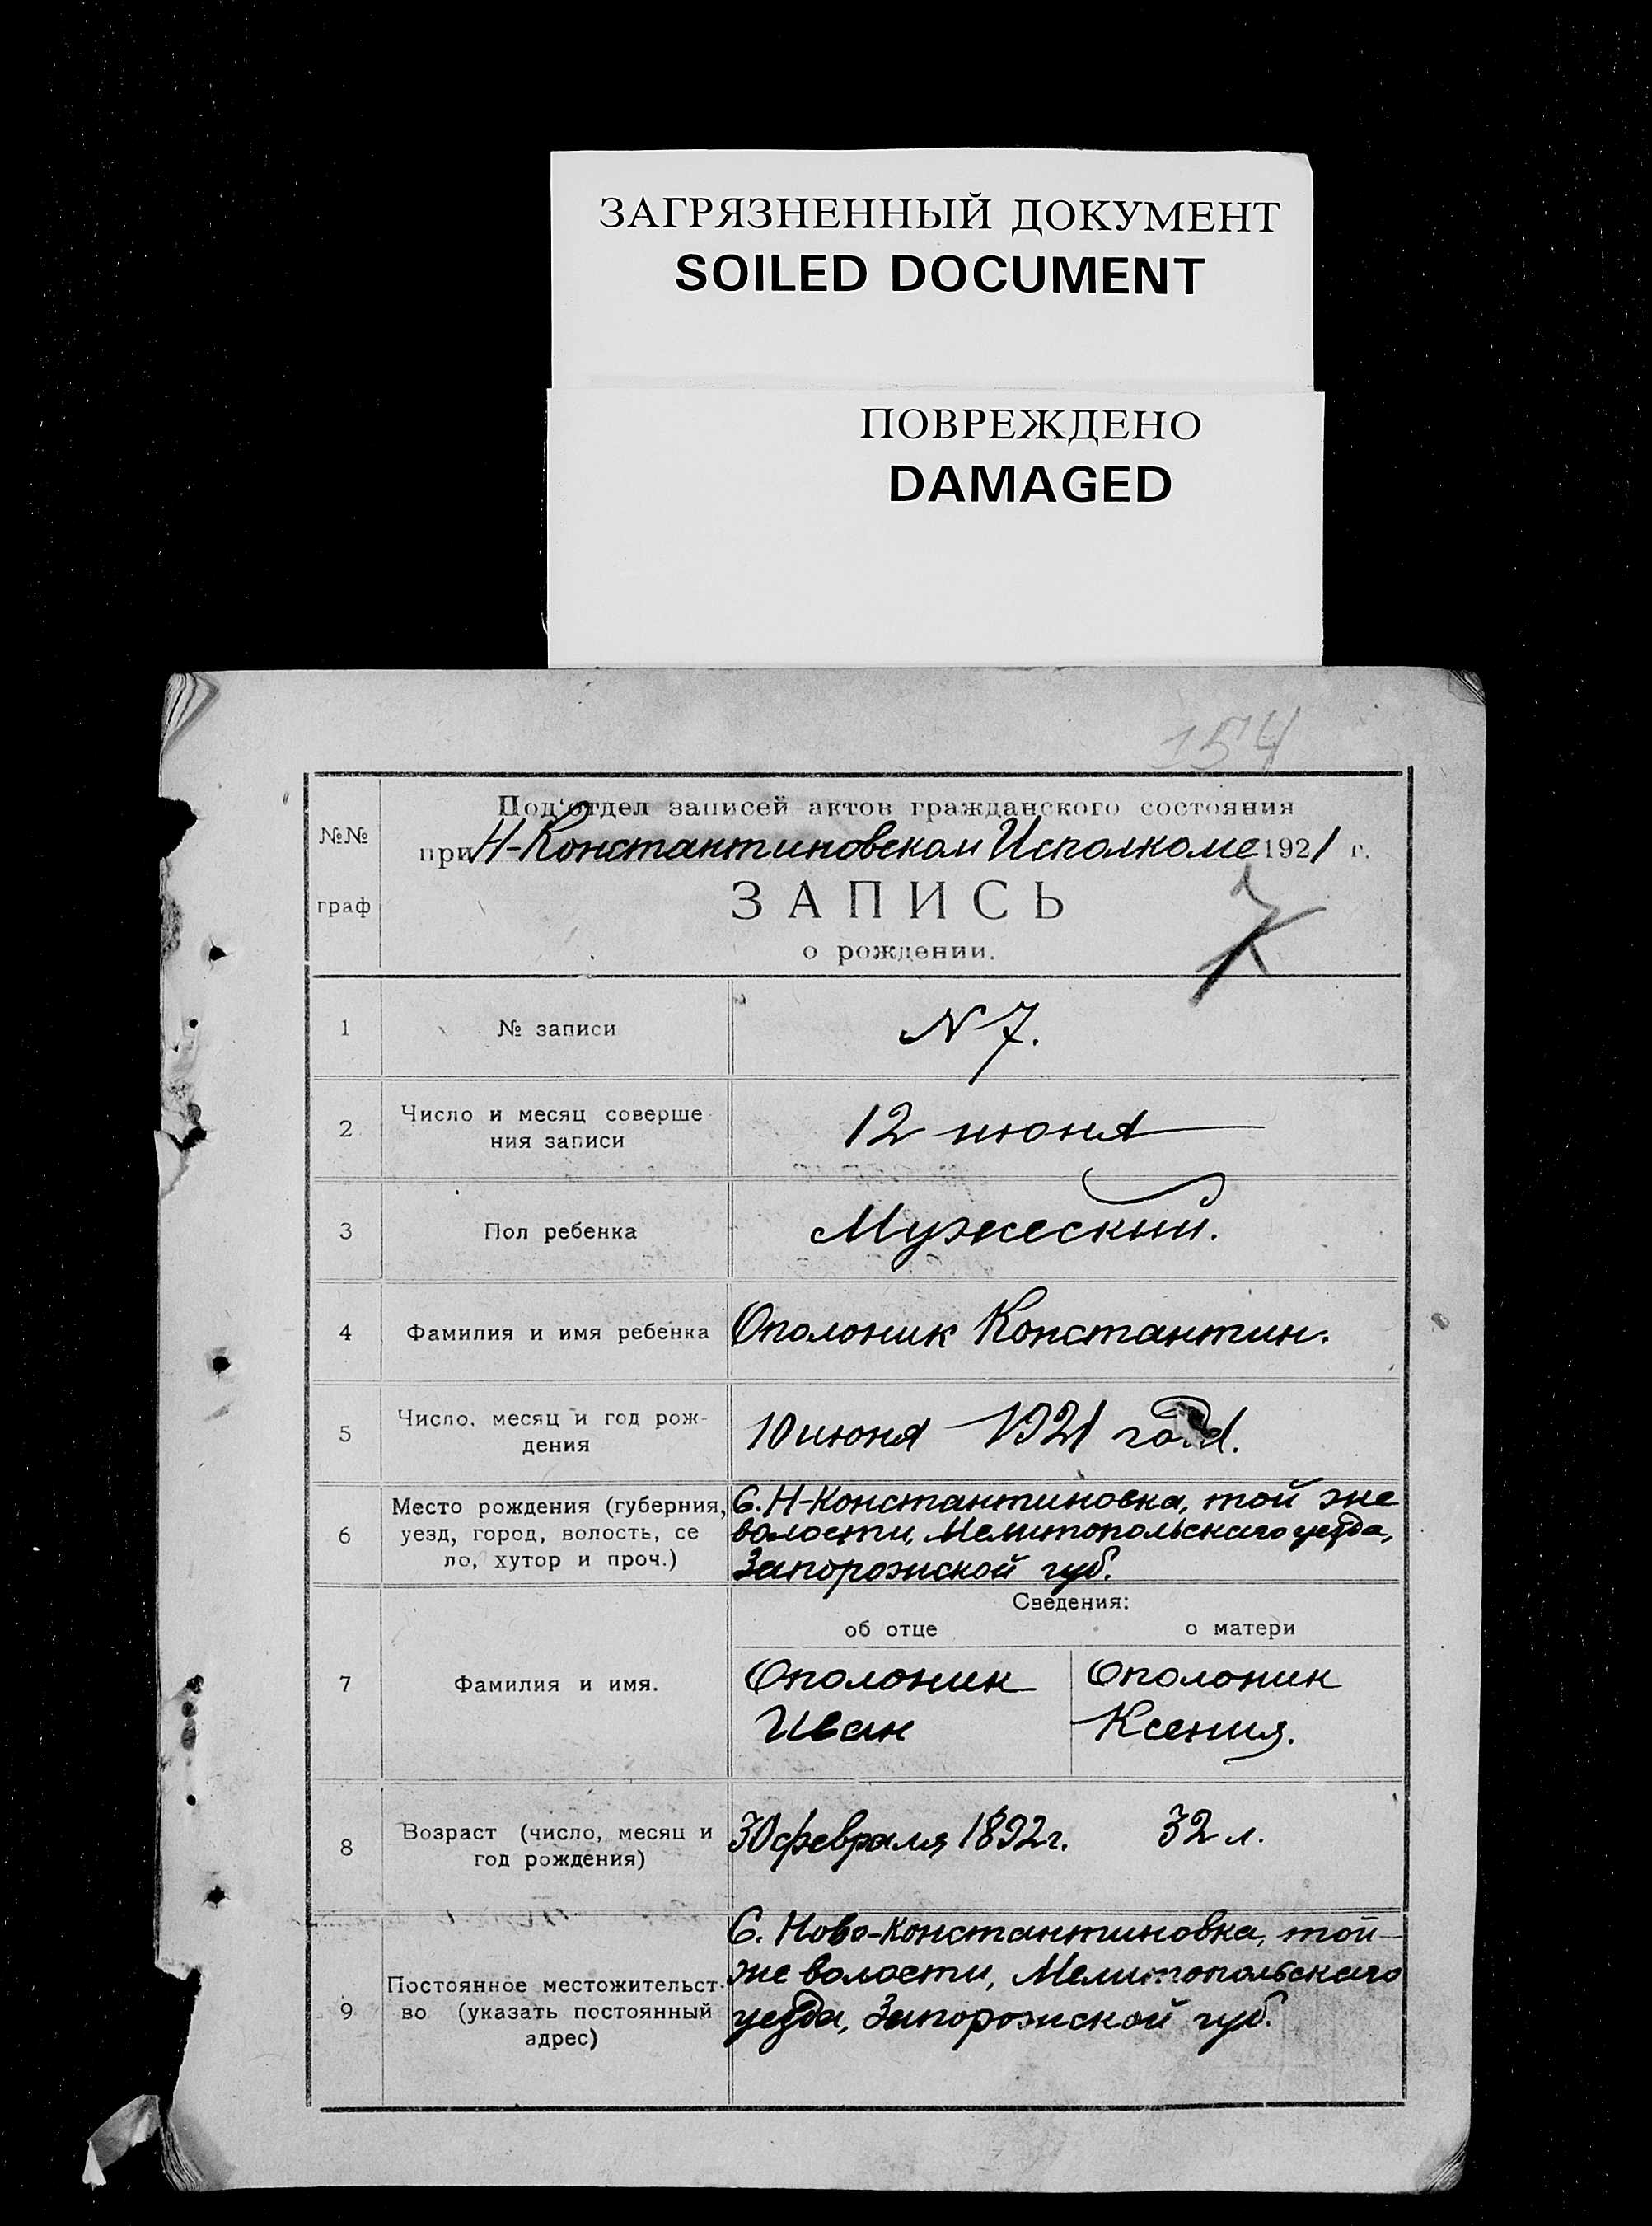 ЗАГРЯЗНЕННЫЙ ДОКУМЕНТ
SOILED DOCUMENT
ПОВРЕЖДЕНО
DAMAGED
154
№№
граф
Под'отдел записей актов гражданского состояния
при Н-Константиновском Исполкоме 1921 г.
ЗАПИСЬ
о рождении.
7
1
№ записи
N 7.
2
Число и месяц соверше
ния записи
12 июня
3
Пол ребенка
Мужеский.
4
Фамилия и имя ребенка
Ополоник Константин.
5
Число, месяц и год рож-
дения
10 июня 1921 года.
6
Место рождения (губерния,
уезд, город, волость, се
ло, хутор и проч.)
С. Н-Константиновка, той же
волости, Мелитопольскаго уезда,
Запорожской губ.
Сведения:
об отце
о матери
7
Фамилия и имя.
Ополоник
Иван
Ополоник
Ксения.
8
Возраст (число, месяц и
год рождения)
30 февраля 1892 г.
32 л.
9
Постоянное местожительст-
во (указать постоянный
адрес)
С. Ново-Константиновка, той
же волости, Мелитопольскаго
уезда, Запорожской губ.